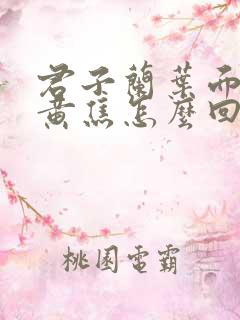 君子蘭葉而
黃焦怎麼回
桃園電霸